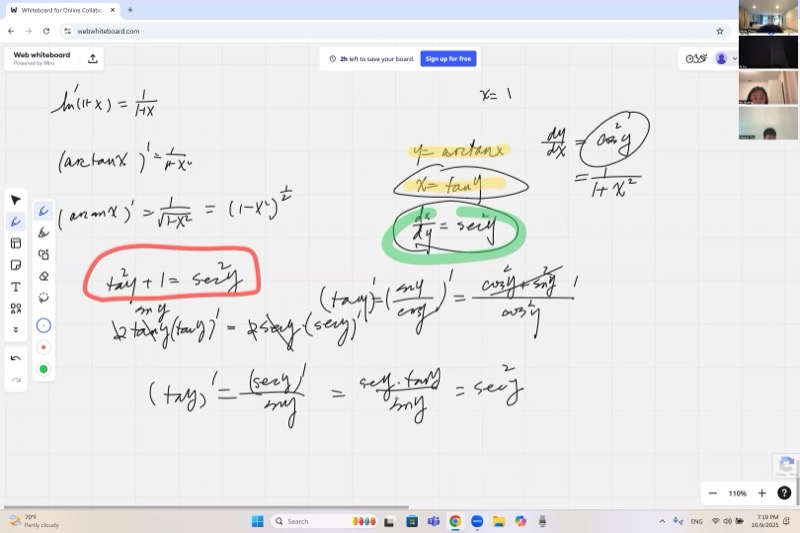 Whiteboard for Online Collabo
webwhiteboard.com
Web whiteboard
Powered by Miro
2h left to save your board.
Sign up for free
ln'(1+x) = 1/(1+x)
x = 1
(arctanx)' = 1/(1+x²)
y = arctanx
dy/dx = cos²y
x = tany
= 1/(1+x²)
= 1/√(1-x²) = (1-x²)^(1/2)
dx/dy = sec²y
tan²y + 1 = sec²y
(tany)' = (siny/cosy)' = (cos²y + sin²y)/cos²y
siny
2 tany (tany)' = 2 secy · (secy)'
(tany)' = (secy)'/siny = secy · tany/siny = sec²y
110%
70°F
Partly cloudy
Search
ENG
7:19 PM
10/9/2025